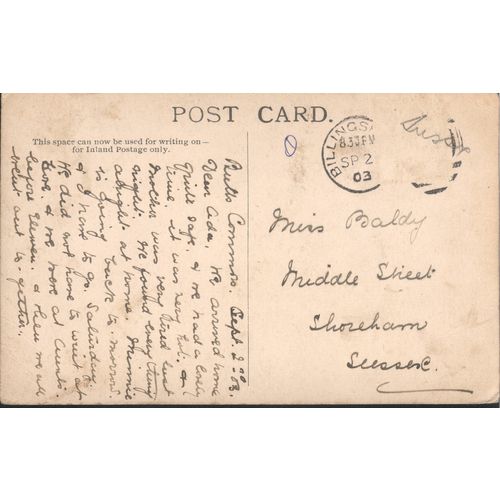 POST CARD.
This space can now be used for writing on—
for Inland Postage only.
BILLINGS
8 33 PM
SP 2
03
Sussex
Miss Baldy
Middle Street
Shoreham
Sussex.
Common Sept 2nd 03.
Dear Ada, We arrived home
quite safe, & we had a lovely
time it was very hot, &
Mother was very tired last
night. We found everything
alright at home. Minnie
is going back to-morrow
& I have to go Saturday.
He did not have to wait at
& we were at Aunt's
before eleven. & then we all
went out to-gether.